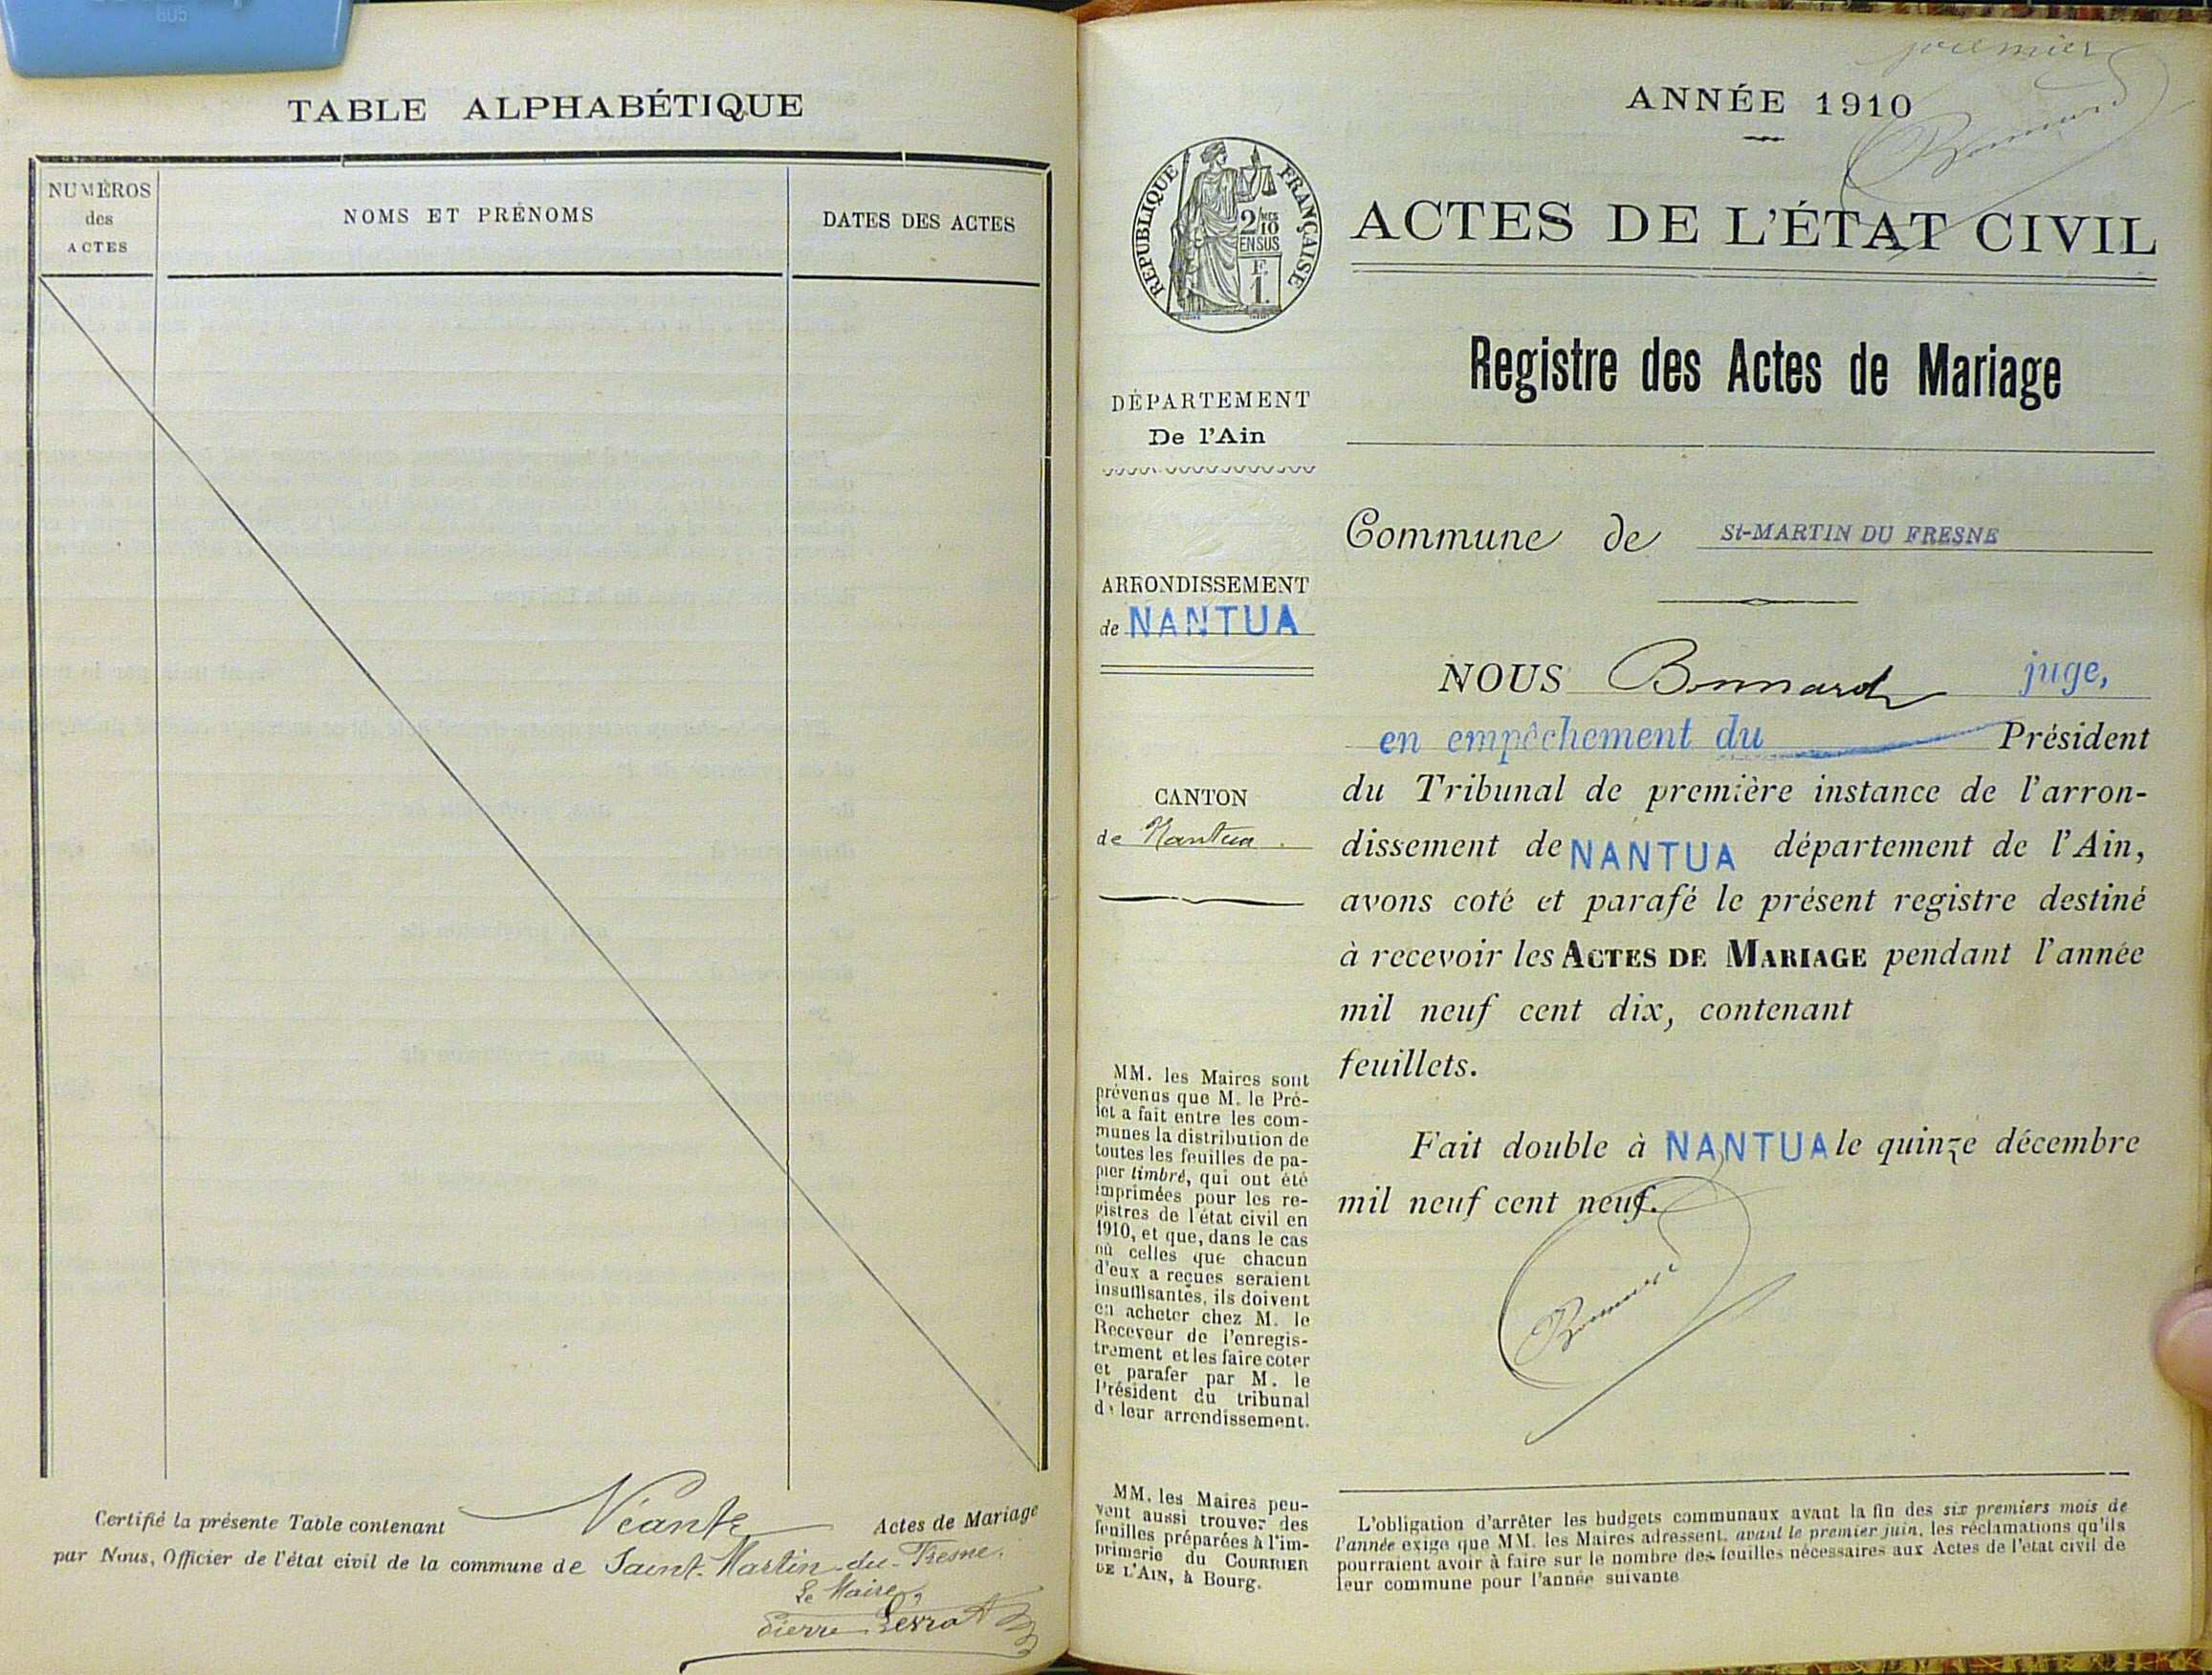 TABLE ALPHABÉTIQUE
NUMÉROS
des
ACTES
NOMS ET PRÉNOMS
DATES DES ACTES
Certifié la présente Table contenant Néante Actes de Mariage
par Nous, Officier de l'état civil de la commune de Saint-Martin-du-Fresne.
Le Maire,
Pierre
premier
Bonnard
ANNÉE 1910
RÉPUBLIQUE FRANÇAISE
2/10
EN SUS
F.
1.
ACTES DE L'ÉTAT CIVIL
Registre des Actes de Mariage
DÉPARTEMENT
De l'Ain
Commune de St-MARTIN DU FRESNE
ARRONDISSEMENT
de NANTUA
CANTON
de Nantua.
NOUS Bonnard juge,
en empêchement du Président
du Tribunal de première instance de l'arron-
dissement de NANTUA département de l'Ain,
avons coté et parafé le présent registre destiné
à recevoir les ACTES DE MARIAGE pendant l'année
mil neuf cent dix, contenant
feuillets.
Fait double à NANTUA le quinze décembre
mil neuf cent neuf.
Bonnard
MM. les Maires sont
prévenus que M. le Pré-
fet a fait entre les com-
munes la distribution de
toutes les feuilles de pa-
pier timbré, qui ont été
imprimées pour les re-
gistres de l'état civil en
1910, et que, dans le cas
où celles que chacun
d'eux a reçues seraient
insuffisantes, ils doivent
en acheter chez M. le
Receveur de l'enregis-
trement et les faire coter
et parafer par M. le
Président du tribunal
de leur arrondissement.
MM. les Maires peu-
vent aussi trouver des
feuilles préparées à l'im-
primerie du COURRIER
DE L'AIN, à Bourg.
L'obligation d'arrêter les budgets communaux avant la fin des six premiers mois de
l'année exige que MM. les Maires adressent, avant le premier juin, les réclamations qu'ils
pourraient avoir à faire sur le nombre des feuilles nécessaires aux Actes de l'état civil de
leur commune pour l'année suivante